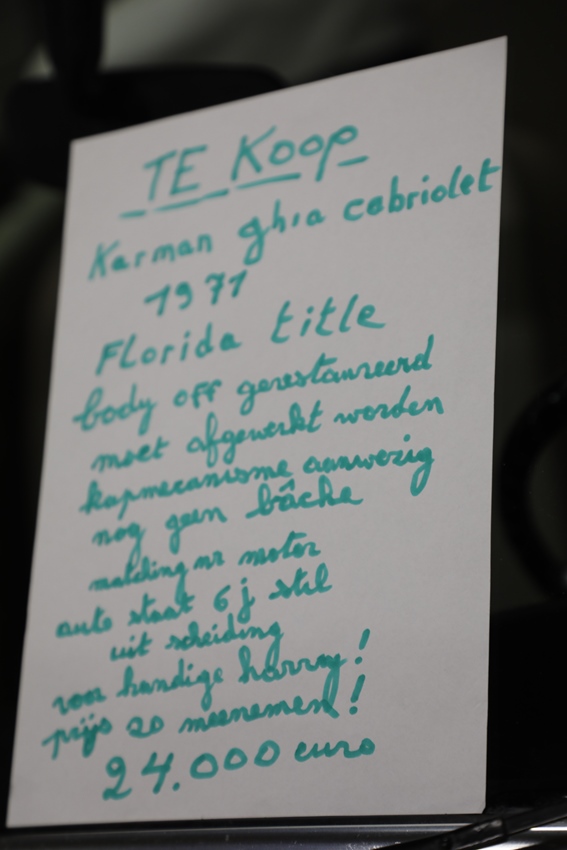 TE Koop
Karman ghia cabriolet
1971
Florida title
body off gerestaureerd
moet afgewerkt worden
kapmecanisme aanwezig
nog geen bâche
matching nr motor
auto staat 6 j stil
uit scheiding
voor handige harry!
prijs zo meenemen!
24.000 euro